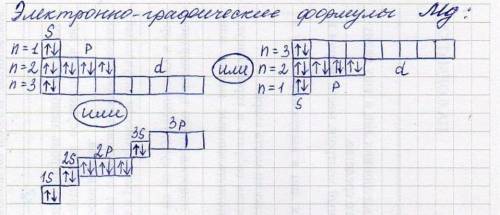 Электронно-графические формулы Mg:
S
n=1 ↑↓ p
n=2 ↑↓ ↑↓ ↑↓ ↑↓ d
n=3 ↑↓
или
n=3 ↑↓
n=2 ↑↓ ↑↓ ↑↓ ↑↓ d
n=1 ↑↓ p
S
или
3p
3S ↑↓
2p ↑↓ ↑↓ ↑↓
2S ↑↓
1S ↑↓